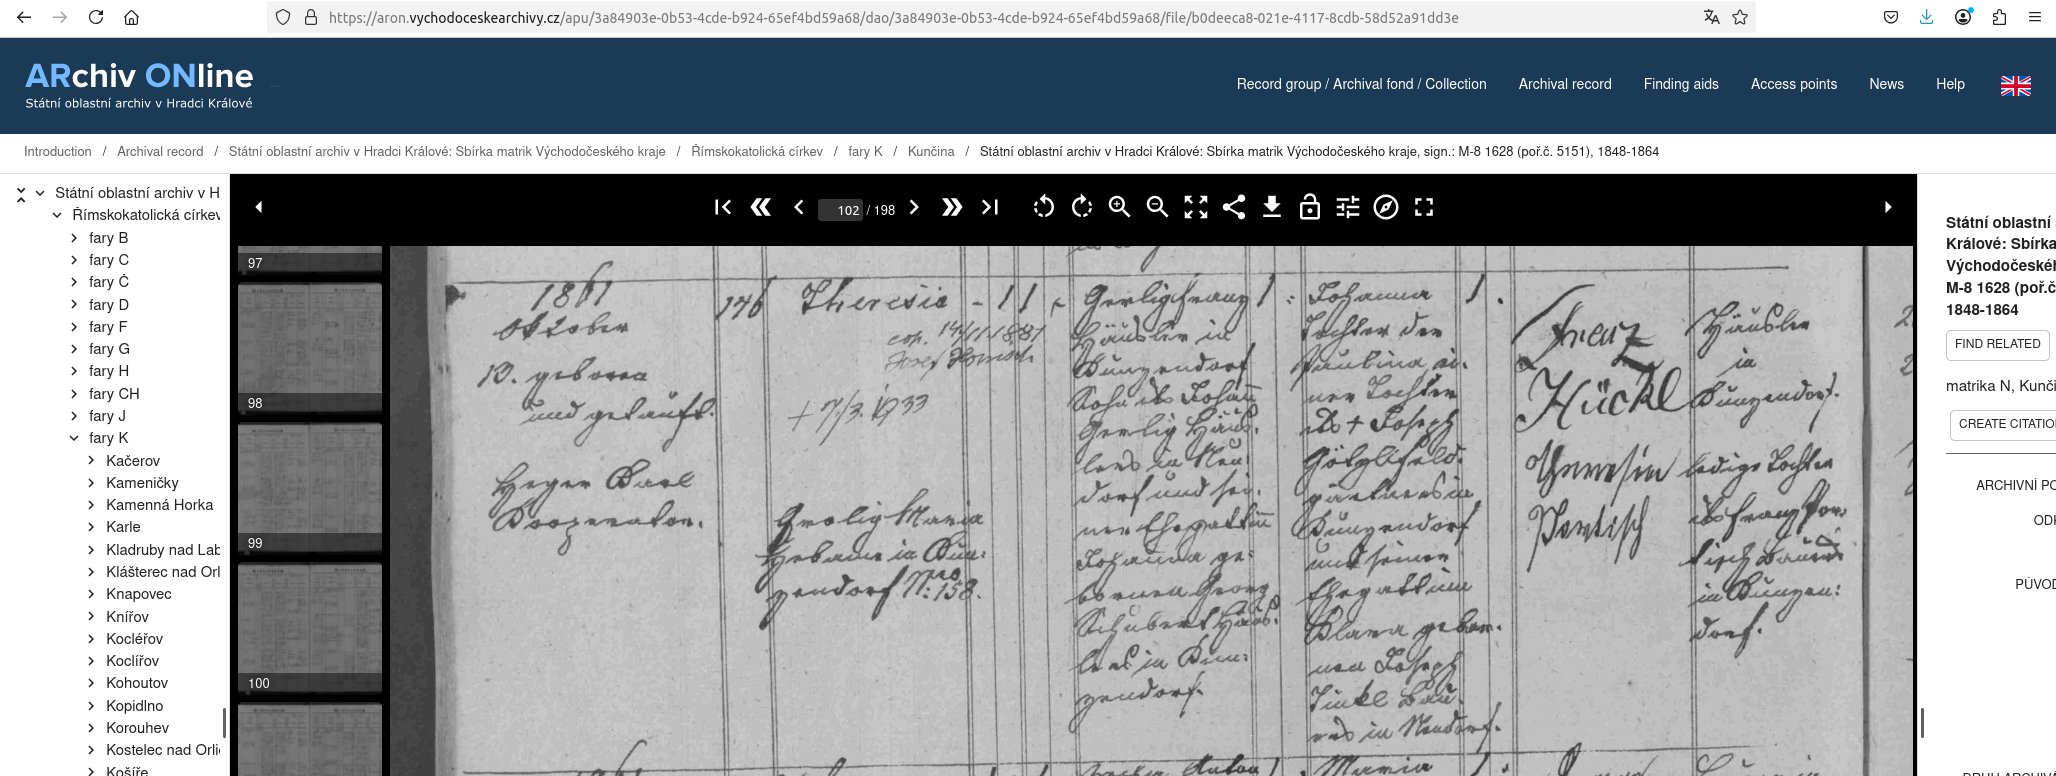 https://aron.vychodoceskearchivy.cz/apu/3a84903e-0b53-4cde-b924-65ef4bd59a68/dao/3a84903e-0b53-4cde-b924-65ef4bd59a68/file/b0deeca8-021e-4117-8cdb-58d52a91dd3e
ARchiv ONline
Státní oblastní archiv v Hradci Králové
Record group / Archival fond / Collection
Archival record
Finding aids
Access points
News
Help
Introduction / Archival record / Státní oblastní archiv v Hradci Králové: Sbírka matrik Východočeského kraje / Římskokatolická církev / fary K / Kunčina / Státní oblastní archiv v Hradci Králové: Sbírka matrik Východočeského kraje, sign.: M-8 1628 (poř.č. 5151), 1848-1864
Státní oblastní archiv v H
Římskokatolická církev
fary B
fary C
fary Č
fary D
fary F
fary G
fary H
fary CH
fary J
fary K
Kačerov
Kameničky
Kamenná Horka
Karle
Kladruby nad Lab
Klášterec nad Orl
Knapovec
Knířov
Kocléřov
Koclířov
Kohoutov
Kopidlno
Korouhev
Kostelec nad Orli
Košíře
102 / 198
97
98
99
100
1861
Oktober
13. geboren
und getauft.
Heger Karl
Kooperator.
146
Theresia
cop. 14/11.1881
Josef
+ 7/3. 1933
Grolig Maria
Hebame in Kun:
zendorf Nro: 158.
Gerlig Franz
Häusler in
Kunzendorf
Sohn des Johann
Gerlig Häus:
lers in Neu:
dorf und sei:
ner Ehegattin
Johanna ge:
bornen Georg
Schubert Häus:
lers in Kun:
zendorf.
Johanna
Tochter der
Paulina ei:
ner Tochter
des + Joseph
gärtners in
Kunzendorf
und seiner
Ehegattin
Klara gebor:
nen Joseph
Zinkl Bau:
ers in Neudorf.
Franz
Hückl
Häusler
in
Kunzendorf.
Theresia
Portisch
ledige Tochter
des Franz Por:
tisch Bauers
in Kunzen:
dorf.
Anton
Maria
Státní oblastní
Králové: Sbírka
Východočeské
M-8 1628 (poř.č
1848-1864
FIND RELATED
matrika N, Kunči
CREATE CITATIO
ARCHIVNÍ PO
OD
PŮVOD
DRUH ARCHIVÁ